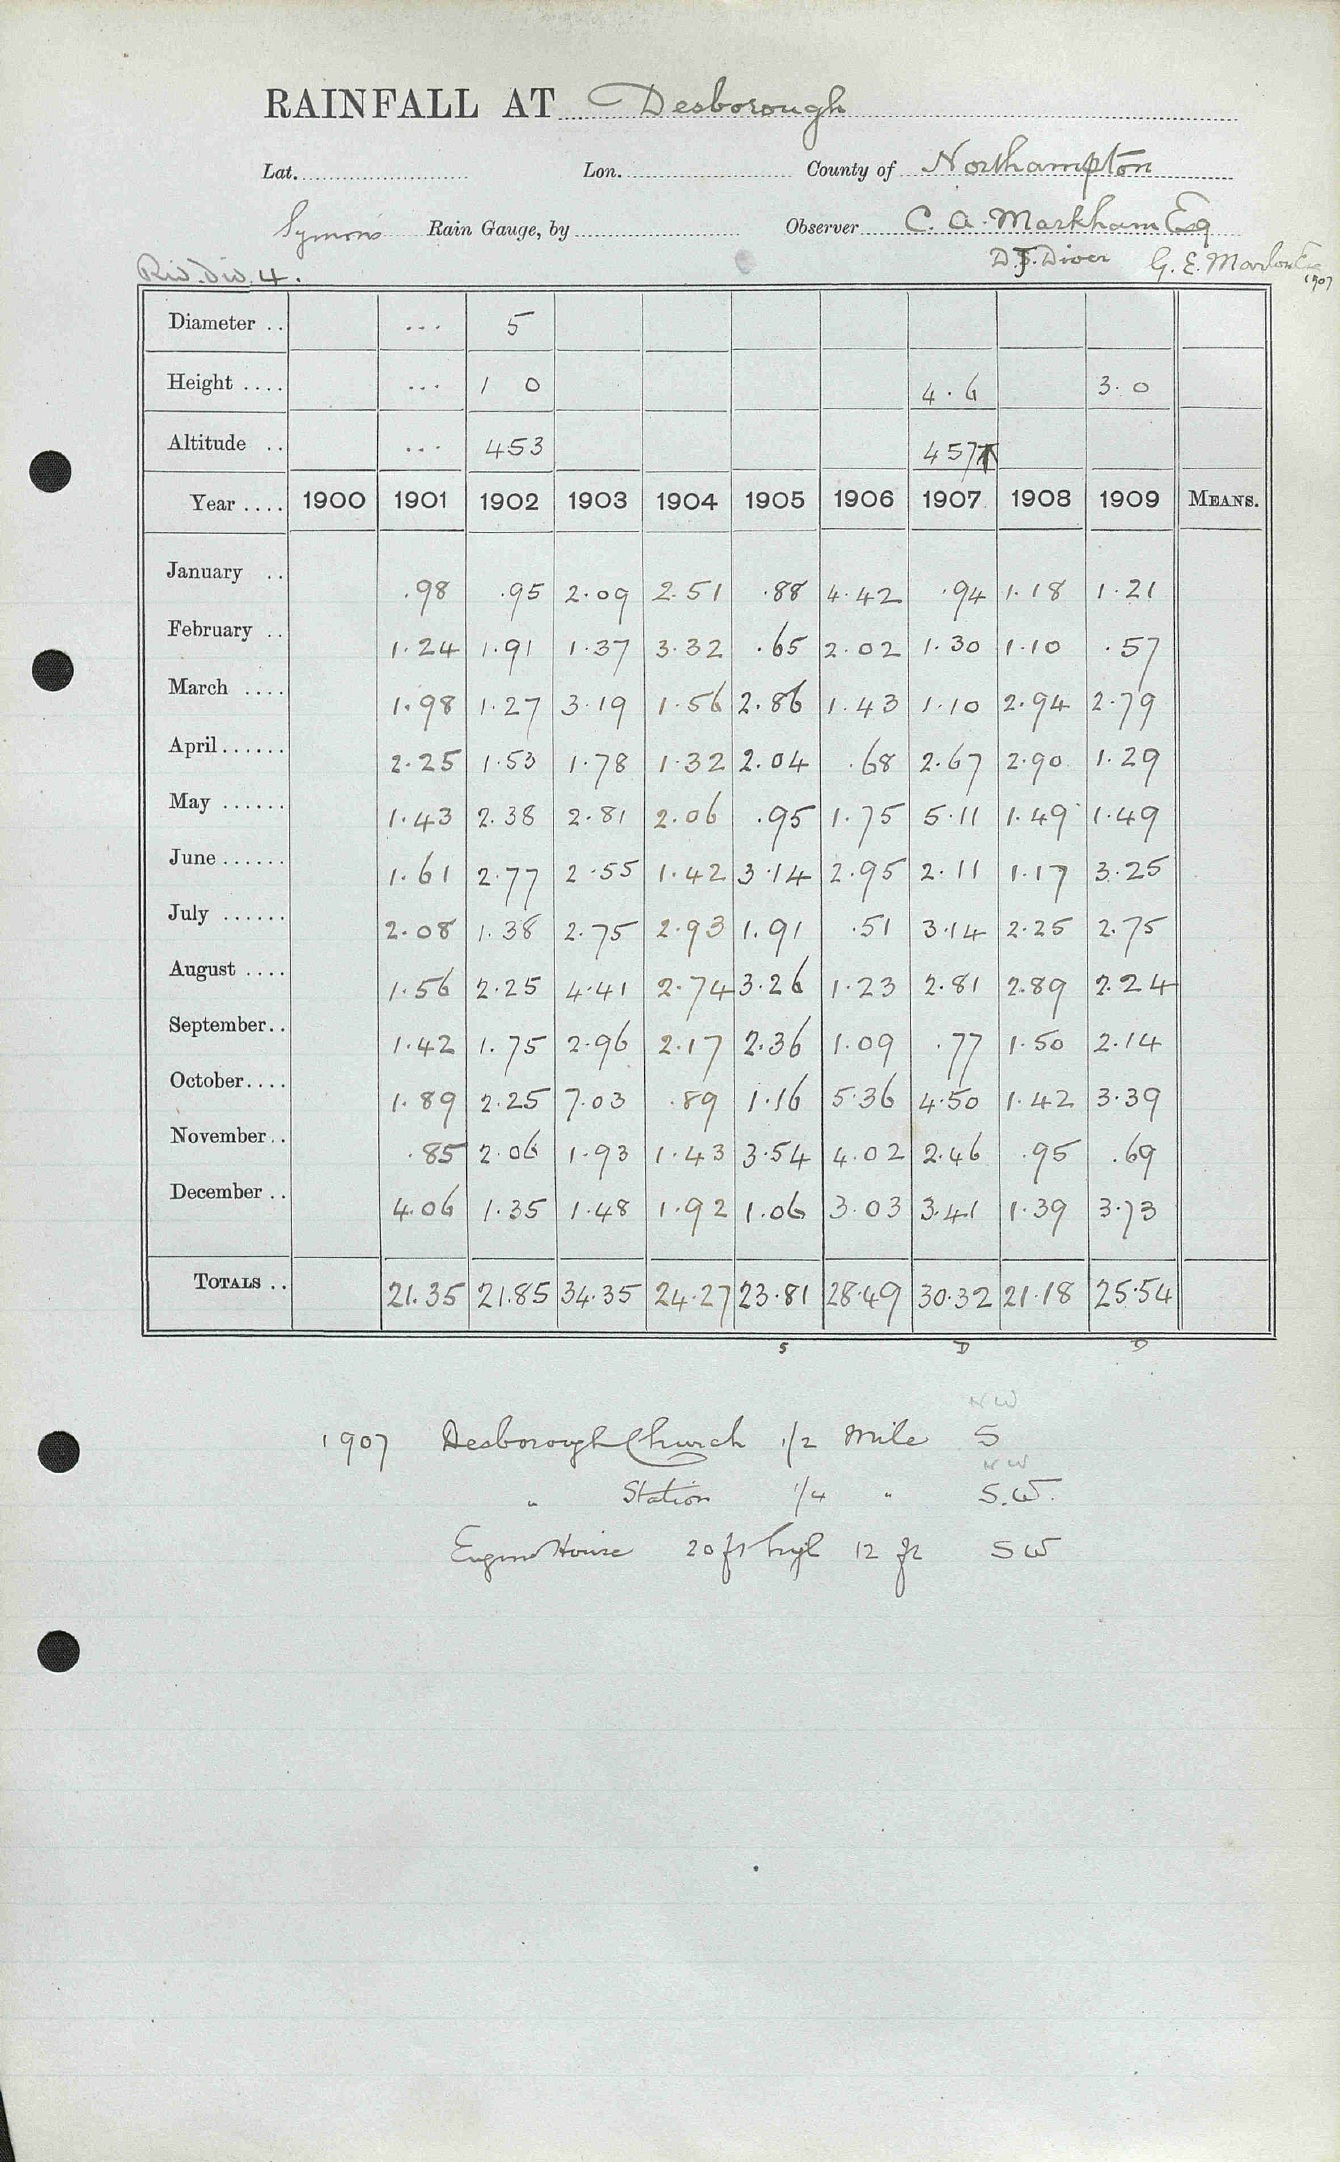 RAINFALL AT Desborough
Lat. Lon. County of Northampton
Symons Rain Gauge, by Observer C. A. Markham Esq
D. Diver G. E. 1907
Riv. Div. 4.
Diameter .. ... 5
Height .... ... 1 0 4.6 3.0
Altitude .. ... 453 457
Year .... 1900 1901 1902 1903 1904 1905 1906 1907 1908 1909 MEANS.
January .. .98 .95 2.09 2.51 .88 4.42 .94 1.18 1.21
February .. 1.24 1.91 1.37 3.32 .65 2.02 1.30 1.10 .57
March .... 1.98 1.27 3.19 1.56 2.86 1.43 1.10 2.94 2.79
April ...... 2.25 1.53 1.78 1.32 2.04 .68 2.67 2.90 1.29
May ...... 1.43 2.38 2.81 2.06 .95 1.75 5.11 1.49 1.49
June ...... 1.61 2.77 2.55 1.42 3.14 2.95 2.11 1.17 3.25
July ...... 2.08 1.38 2.75 2.93 1.91 .51 3.14 2.25 2.75
August .... 1.56 2.25 4.41 2.74 3.26 1.23 2.81 2.89 2.24
September .. 1.42 1.75 2.96 2.17 2.36 1.09 .77 1.50 2.14
October .... 1.89 2.25 7.03 .89 1.16 5.36 4.50 1.42 3.39
November .. .85 2.06 1.93 1.43 3.54 4.02 2.46 .95 .69
December .. 4.06 1.35 1.48 1.92 1.06 3.03 3.41 1.39 3.73
TOTALS .. 21.35 21.85 34.35 24.27 23.81 28.49 30.32 21.18 25.54
S D D
NW
1907 Desborough Church 1/2 Mile S
NW
" Station 1/4 " S.W.
Engine House 20 ft high 12 ft SW